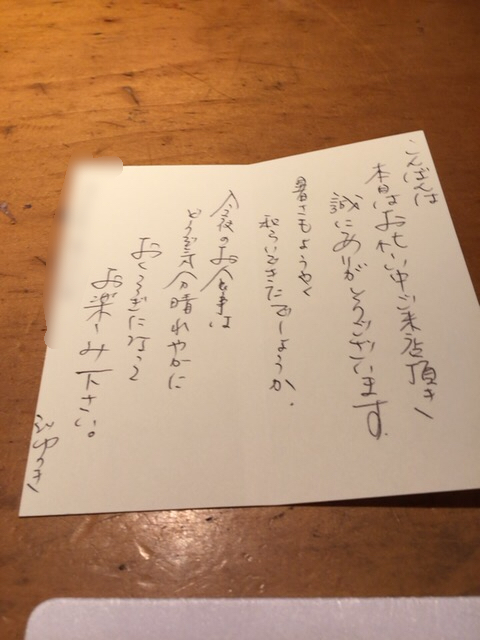 こんばんは
本日はお忙い中ご来店頂き
誠にありがとうございます
暑さもようやく
和らいできたでしょうか.
今夜のお食事は
どうぞ気分晴れやかに
おくつろぎになって
お楽しみ下さい。